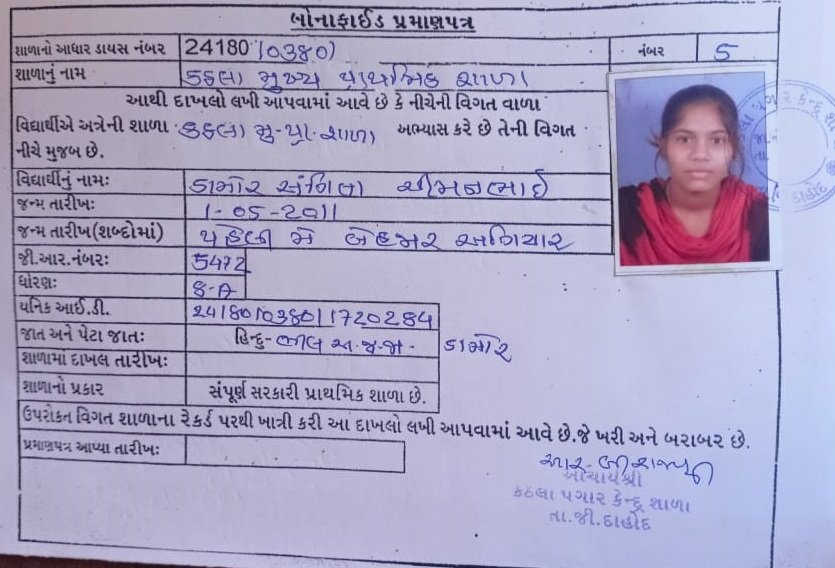 બોનાફાઈડ પ્રમાણપત્ર
શાળાનો આધાર ડાયસ નંબર 24180103801 નંબર 5
શાળાનું નામ કઠલા મુખ્ય પ્રાથમિક શાળા
આથી દાખલો લખી આપવામાં આવે છે કે નીચેની વિગત વાળા
વિદ્યાર્થીએ અત્રેની શાળા કઠલા મુ-પ્રા-શાળા અભ્યાસ કરે છે તેની વિગત
નીચે મુજબ છે.
વિદ્યાર્થીનું નામઃ ડામોર સંગિતા ચીમનભાઈ
જન્મ તારીખઃ 1-05-2011
જન્મ તારીખ(શબ્દોમાં) પહેલી મે બેહજાર અગિયાર
જી.આર.નંબરઃ 5472
ધોરણઃ 8-A
યનિક આઈ.ડી. 241801038011720284
જાત અને પેટા જાતઃ હિન્દુ-ભીલ અ.જ.જા- ડામોર
શાળામાં દાખલ તારીખઃ
શાળાનો પ્રકાર સંપૂર્ણ સરકારી પ્રાથમિક શાળા છે.
ઉપરોકત વિગત શાળાના રેકર્ડ પરથી ખાત્રી કરી આ દાખલો લખી આપવામાં આવે છે.જે ખરી અને બરાબર છે.
પ્રમાણપત્ર આપ્યા તારીખઃ
આચાર્યશ્રી
કઠલા પગાર કેન્દ્ર શાળા
તા.જી.દાહોદ